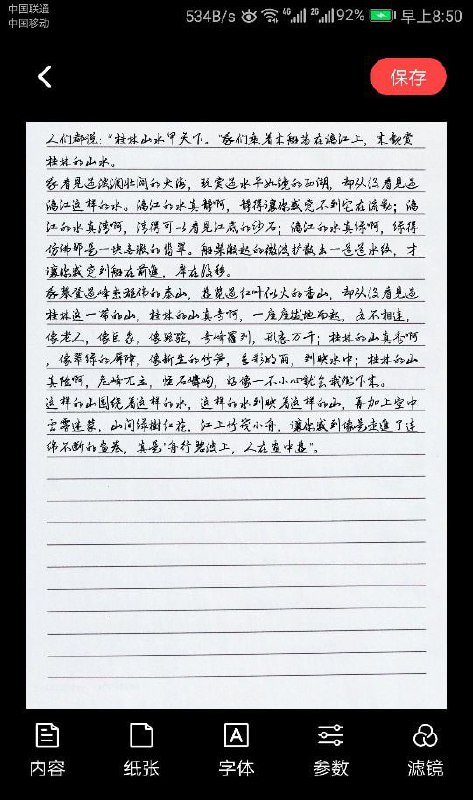 中国联通
中国移动
534B/s 4G 2G 92% 早上8:50
保存
人们都说：“桂林山水甲天下。”我们乘着木船荡在漓江上，来观赏
桂林的山水。
我看见过波澜壮阔的大海，玩赏过水平如镜的西湖，却从没看见过
漓江这样的水。漓江的水真静啊，静得让你感觉不到它在流动；漓
江的水真清啊，清得可以看见江底的沙石；漓江的水真绿啊，绿得
仿佛那是一块无瑕的翡翠。船桨激起的微波扩散出一道道水纹，才
让你感觉到船在前进，岸在后移。
我攀登过峰峦雄伟的泰山，游览过红叶似火的香山，却从没看见过
桂林这一带的山，桂林的山真奇啊，一座座拔地而起，各不相连，
像老人，像巨象，像骆驼，奇峰罗列，形态万千；桂林的山真秀啊
，像翠绿的屏障，像新生的竹笋，色彩明丽，倒映水中；桂林的山
真险啊，危峰兀立，怪石嶙峋，好像一不小心就会栽倒下来。
这样的山围绕着这样的水，这样的水倒映着这样的山，再加上空中
云雾迷蒙，山间绿树红花，江上竹筏小舟，让你感到像是走进了连
绵不断的画卷，真是“舟行碧波上，人在画中游”。
内容 纸张 字体 参数 滤镜